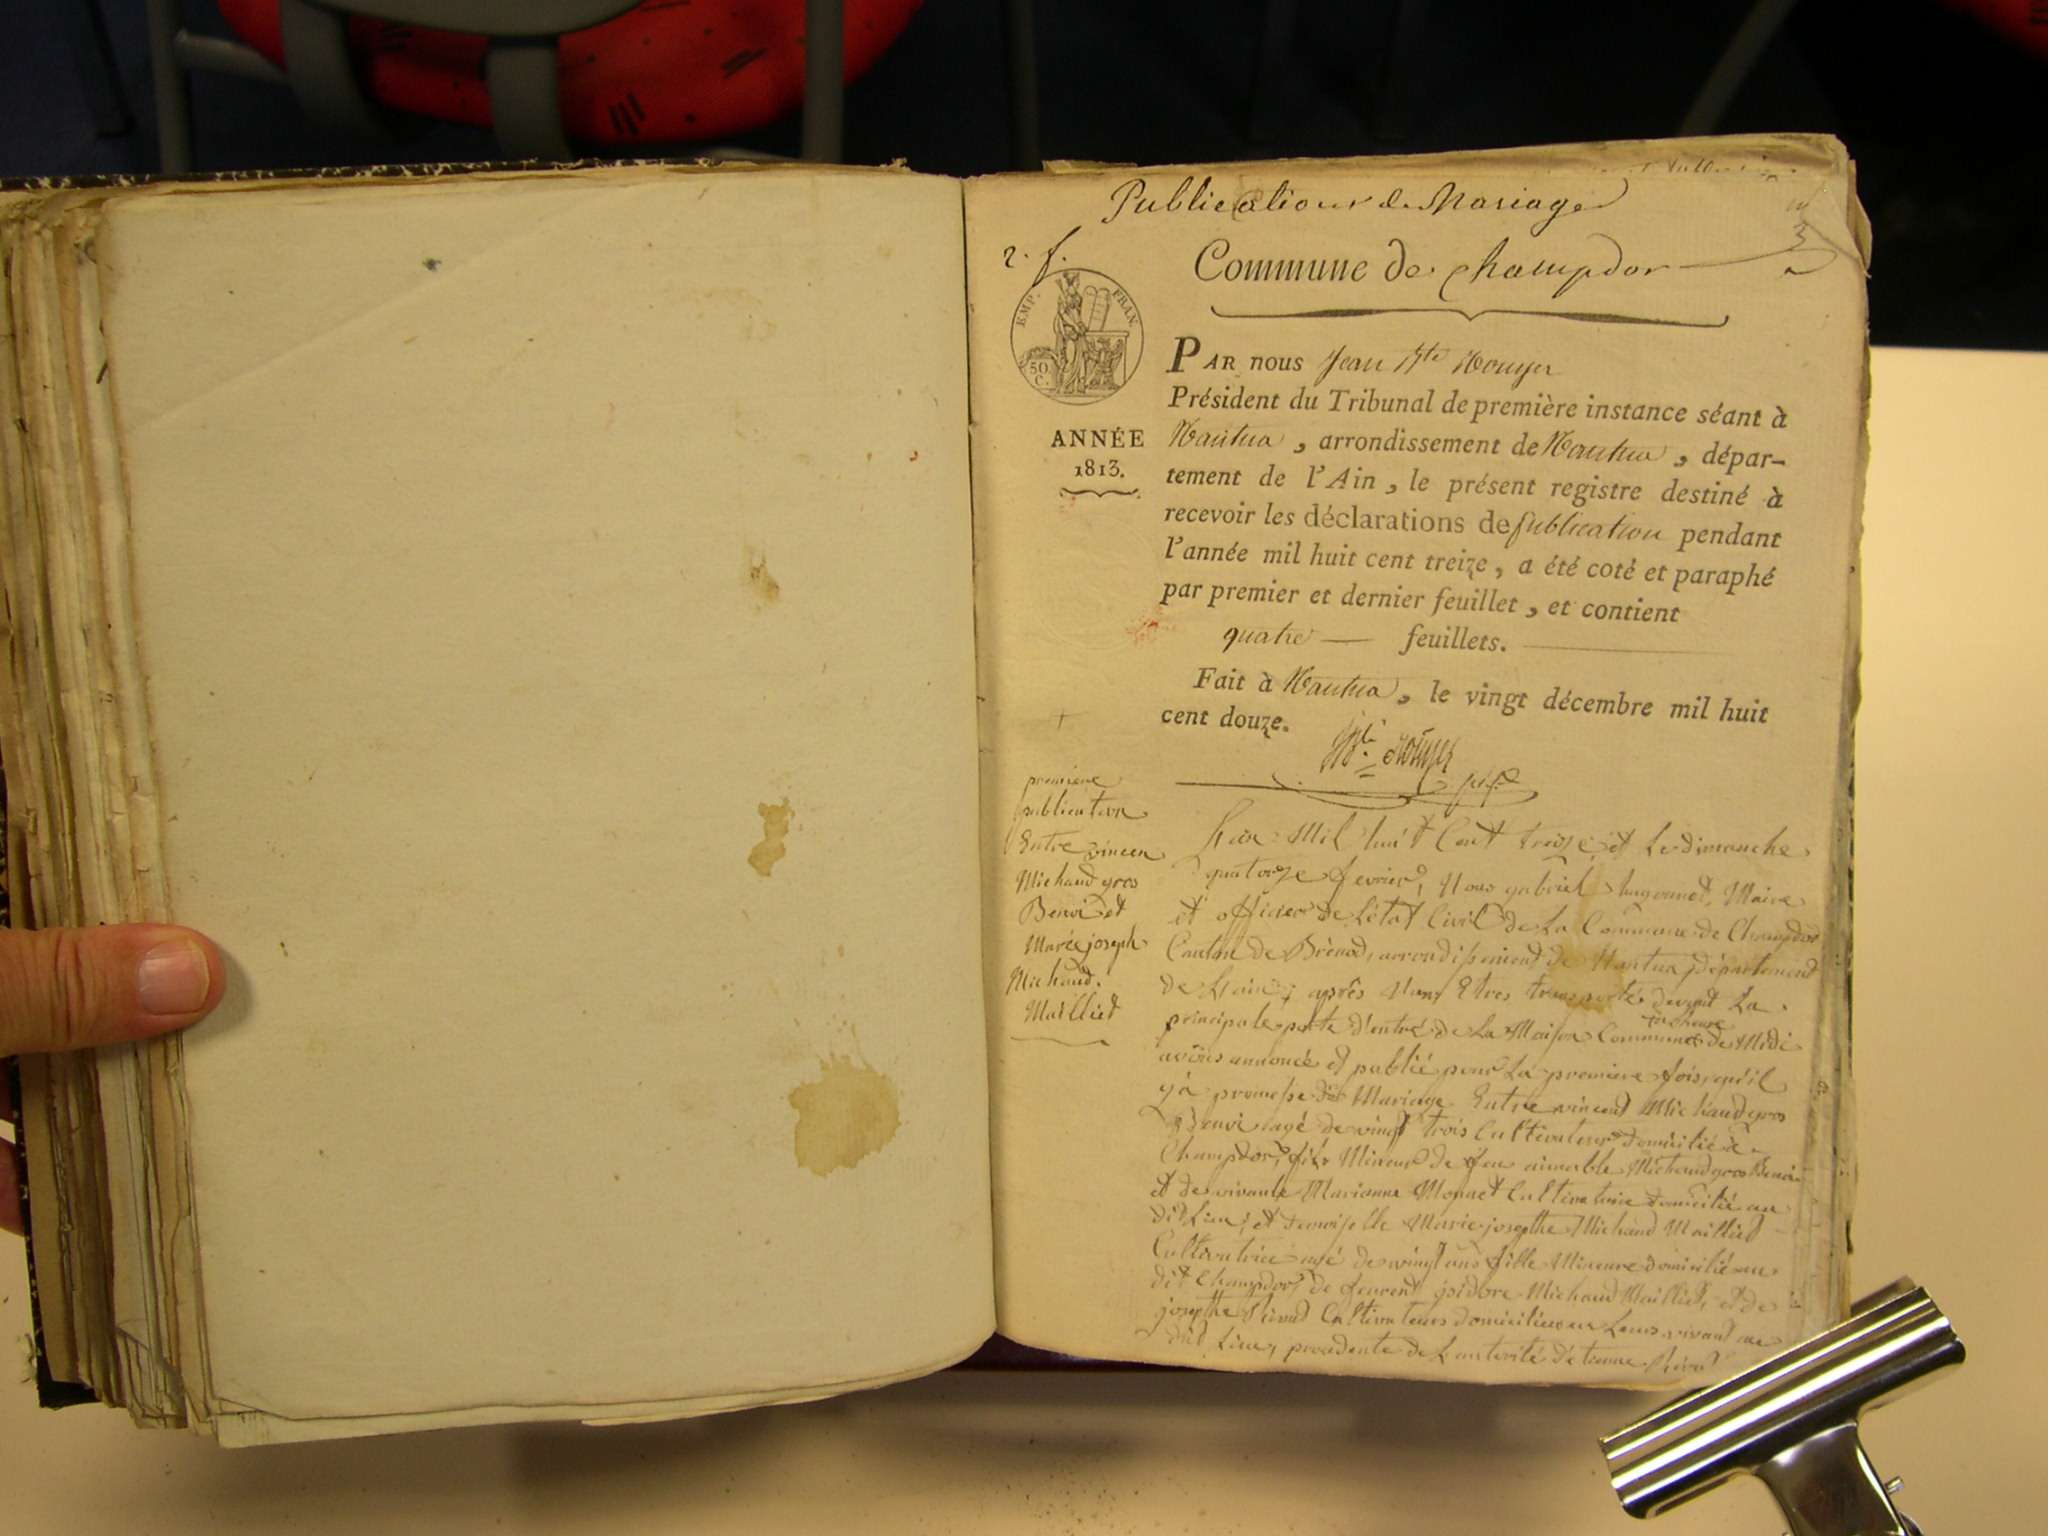 Publications de Mariage
2. f.
Commune de champdor
3
EMP. FRAN.
50
C.
ANNÉE
1813.
PAR nous Jean Bte
Président du Tribunal de première instance séant à
Nantua, arrondissement de Nantua, dépar-
tement de l'Ain, le présent registre destiné à
recevoir les déclarations de publication pendant
l'année mil huit cent treize, a été coté et paraphé
par premier et dernier feuillet, et contient
quatre feuillets.
Fait à Nantua, le vingt décembre mil huit
cent douze.
première
publication
Entre vincen
Michaud gros
Benoi et
Marie joseph
Michaud.
Mailliet
L'an Mil huit Cent treize et Le dimanche
quatorze fevrier, Nous gabriel hugonnet, Maire
et officier de L'état Civil de La Commune de Champdor
Canton de Brénod, arrondissement de Nantua, département
de L'ain; après Nous Etres transporté devant La
principale porte d'entré de La Maison Commune à L'heure de Midi
avons annoncé et publié pour La premiere fois, qu'il
y à promesse de Mariage Entre vincent Michaud gros
Benoi agé de vingt trois Cultivateur domicilié à
Champdor, fils Mineur de feu aimable Michaud gros Benoi
et de vivante Marianne Monnet Cultivatrice domicilié au
dit Lieu; et demoiselle Marie josephe Michaud Mailliet
Cultivatrice agé de vingt ans fille Mineure domicilié au
dit Champdor de Laurent jsidore Michaud Mailliet, et de
josephte Cultivateurs domiciliés vivant au
dit Lieu, procedente de L'autorité d'